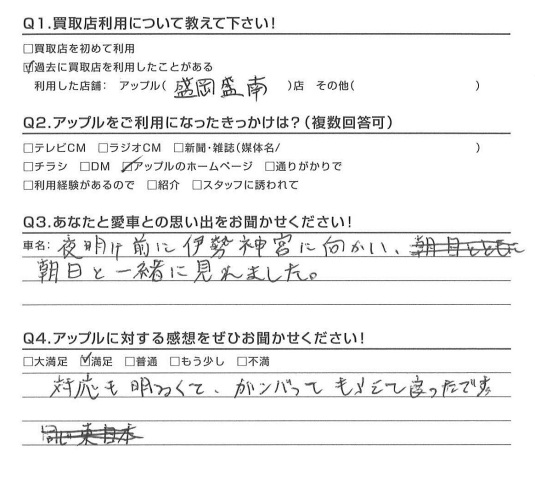 Q1.買取店利用について教えて下さい!
□買取店を初めて利用
☑過去に買取店を利用したことがある
利用した店舗: アップル( 盛岡盛南 )店 その他( )
Q2.アップルをご利用になったきっかけは?(複数回答可)
□テレビCM □ラジオCM □新聞・雑誌(媒体名/ )
□チラシ □DM ☑アップルのホームページ □通りがかりで
□利用経験があるので □紹介 □スタッフに誘われて
Q3.あなたと愛車との思い出をお聞かせください!
車名: 夜明け前に伊勢神宮に向かい、朝日とともに
朝日と一緒に見れました。
Q4.アップルに対する感想をぜひお聞かせください!
□大満足 ☑満足 □普通 □もう少し □不満
対応も明るくて、ガンバってもらえて良ったです
東日本